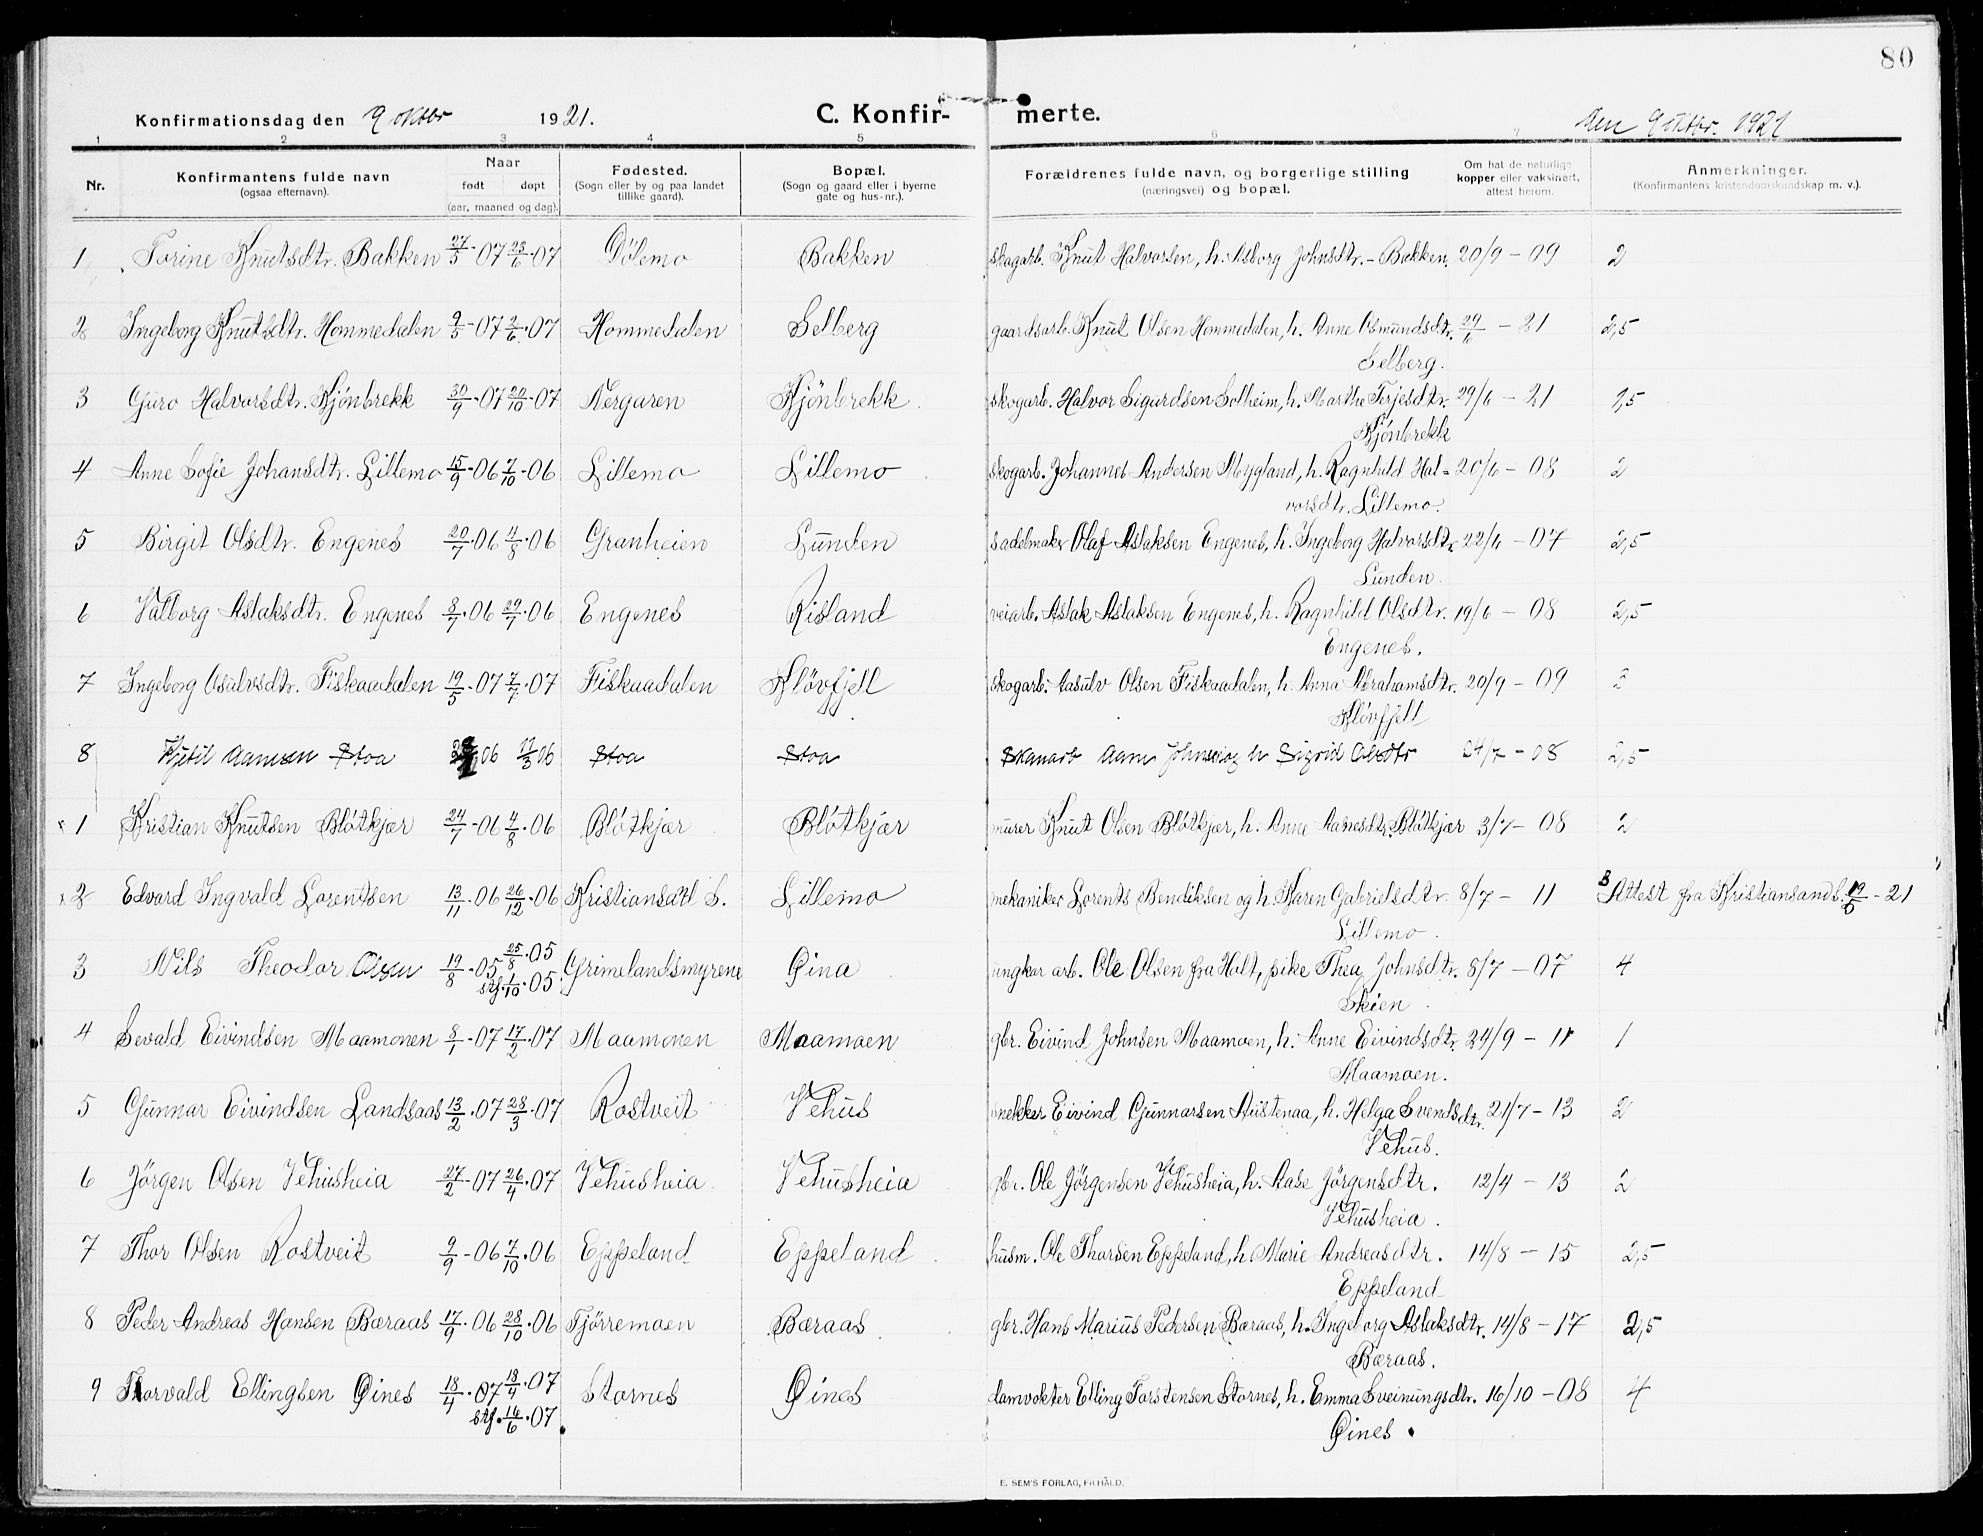 80
Konfirmationsdag den 9 oktbr 1921. C. Konfir- merte. den 9 oktbr. 1921
1 2 3 4 5 6 7
Nr. Konfirmantens fulde navn (ogsaa efternavn). Naar født døpt (aar, maaned og dag). Fødested. (Sogn eller by og paa landet tillike gaard). Bopæl. (Sogn og gaard eller i byerne gate og hus-nr.). Forældrenes fulde navn, og borgerlige stilling (næringsvei) og bopæl. Om hat de naturlige kopper eller vaksinert, attest herom. Anmerkninger. (Konfirmantens kristendomskundskap m. v.).
1 Torine Knutsdtr. Bakken 27/5-07 23/6-07 Dölemo Bakken skogarb. Knut Halvorsen, h. Asborg Johnsdtr. - Bakken. 20/9 - 09 2
2 Ingeborg Knutsdtr. Hommedalen 9/5-07 2/6-07 Hommedalen Selberg gaardsarb. Knut Olsen Hommedalen, h. Anne Osmundsdtr. 29/6 - 21 2,5
Selberg.
3 Guro Halvorsdtr. Kjönbrekk 30/9-07 20/10-07 Nergaren Kjönbrekk skogarb. Halvor Sigurdsen Solheim, h. Marthe Terjesdtr. 29/6 - 21 2,5
Kjönbrekk
4 Anne Sofie Johansdtr. Lillemo 15/9-06 7/10-06 Lillemo Lillemo skogarb. Johannes Andersen Mygland, h. Ragnhild Hal- 20/6 - 08 2
vorsdtr. Lillemo.
5 Birgit Olsdtr. Engenes 20/7-06 4/8-06 Granheien Lunden sadelmaker Olaf Aslaksen Engenes, h. Ingeborg Halvorsdtr. 22/6 - 07 2,5
Lunden.
6 Valborg Aslaksdtr. Engenes 8/7-06 29/7-06 Engenes Risland veiarb. Aslak Aslaksen Engenes, h. Ragnhild Olsdtr. 19/6 - 08 2,5
Engenes.
7 Ingeborg Osulvsdtr. Fiskaadalen 19/5-07 7/7-07 Fiskaadalen Kløvfjell skogarb. Aasulv Olsen Fiskaadalen, h. Anna Abrahamsdtr. 20/9 - 09 3
Kløvfjell
8 Kjetil Aamsen Stoa 06 06 Stoa Stoa Aam h Sigrid 24/7 - 08 2,5
1 Kristian Knutsen Bløtkjær 24/7-06 4/8-06 Bløtkjær Bløtkjær murer Knut Olsen Bløtkjær, h. Anne Aanesdtr. Bløtkjær 3/7 - 08 2
2 Edvard Ingvald Lorentsen 13/11-06 26/12-06 Kristiansand S. Lillemo mekaniker Lorents Bendiksen og h. Karen Gabrielsdtr. 8/7 - 11 3 Attest fra Kristiansand S. - 21
Lillemo.
3 Nils Theodor Olsen 19/8-05 25/8-05 Grimelandsmyrene Øina ungkar arb. Ole Olsen fra Holt, pike Thea Johnsdtr. 8/7 - 07 4
stf. 1/10-05 Skien.
4 Sevald Eivindsen Maamonen 8/1-07 17/2-07 Maamonen Maamoen gbr. Eivind Johnsen Maamoen, h. Anne Eivindsdtr. 24/9 - 11 1
Maamoen.
5 Gunnar Eivindsen Landsaas 13/2-07 28/3-07 Rostveit Vehus snekker Eivind Gunnarsen Austenaa, h. Helga Svendsdtr. 21/7 - 13 2
Vehus.
6 Jörgen Olsen Vehusheia 27/2-07 26/4-07 Vehusheia Vehusheia gbr. Ole Jörgensen Vehusheia, h. Aase Jörgensdtr. 12/4 - 13 2
Vehusheia.
7 Thor Olsen Rostveit 9/9-06 7/10-06 Eppeland Eppeland husm. Ole Thorsen Eppeland, h. Marie Andreasdtr. 14/8 - 15 2,5
Eppeland
8 Peder Andreas Hansen Bæraas 17/9-06 28/10-06 Tjørremoen Bæraas gbr. Hans Marius Pedersen Bæraas, h. Ingeborg Aslaksdtr. 14/8 - 17 2,5
Bæraas.
9 Thorvald Ellingsen Øines 18/4-07 18/4-07 Stornes Øines damvokter Elling Torstensen Stornes, h. Emma Sveinungsdtr. 16/10 - 08 4
stf. 16/6-07. Øines.
E. SEM'S FORLAG, F.HALD.